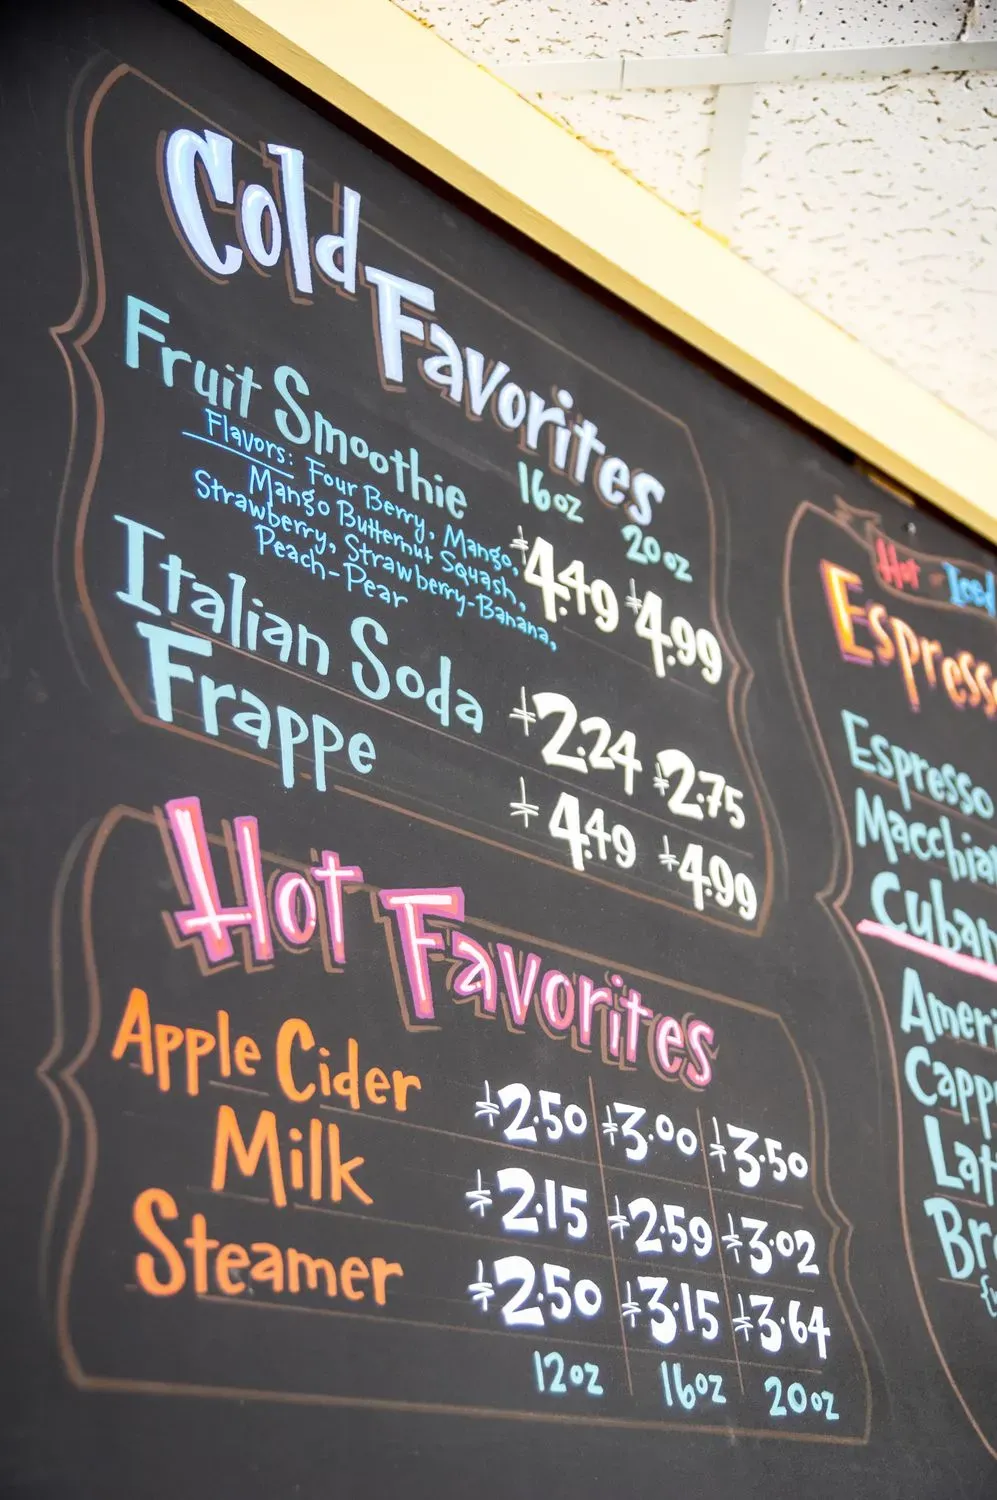 Cold Favorites
16oz 20oz
Fruit Smoothie $4.49 $4.99
Flavors: Four Berry, Mango,
Mango Butternut Squash,
Strawberry, Strawberry-Banana,
Peach-Pear
Italian Soda $2.24 $2.75
Frappe $4.49 $4.99
Hot Favorites
Apple Cider $2.50 $3.00 $3.50
Milk $2.15 $2.59 $3.02
Steamer $2.50 $3.15 $3.64
12oz 16oz 20oz
Hot - Iced
Espresso
Macchia
Cuban
Ameri
Capp
Lat
Br